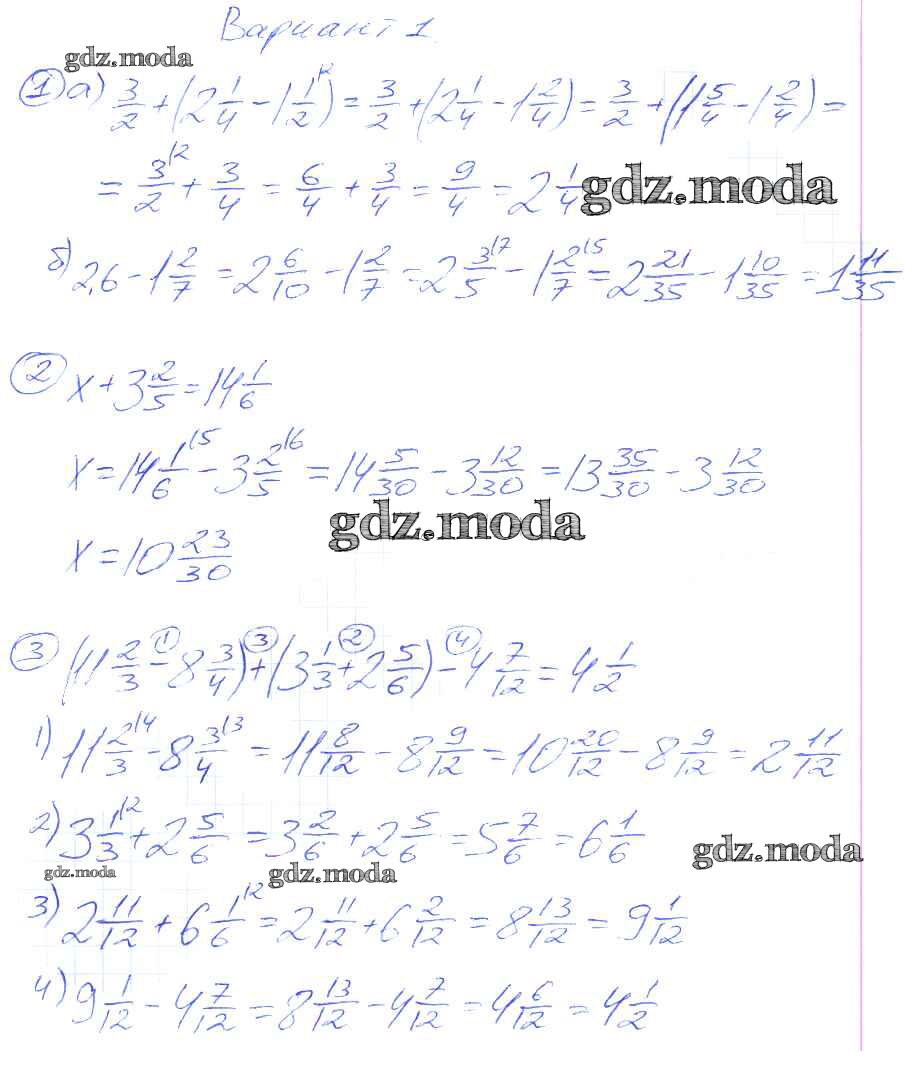 Вариант 1
gdz.moda
① а) 3/2 + (2 1/4 - 1 1/2 |2) = 3/2 + (2 1/4 - 1 2/4) = 3/2 + (1 5/4 - 1 2/4) =
= 3/2 |2 + 3/4 = 6/4 + 3/4 = 9/4 = 2 1/4 gdz.moda
б) 2,6 - 1 2/7 = 2 6/10 - 1 2/7 = 2 3/5 |7 - 1 2/7 |5 = 2 21/35 - 1 10/35 = 1 11/35
② x + 3 2/5 = 14 1/6
x = 14 1/6 |5 - 3 2/5 |6 = 14 5/30 - 3 12/30 = 13 35/30 - 3 12/30
gdz.moda
x = 10 23/30
① ③ ② ④
③ (11 2/3 - 8 3/4) + (3 1/3 + 2 5/6) - 4 7/12 = 4 1/2
1) 11 2/3 |4 - 8 3/4 |3 = 11 8/12 - 8 9/12 = 10 20/12 - 8 9/12 = 2 11/12
2) 3 1/3 |2 + 2 5/6 = 3 2/6 + 2 5/6 = 5 7/6 = 6 1/6
gdz.moda gdz.moda gdz.moda
3) 2 11/12 + 6 1/6 |2 = 2 11/12 + 6 2/12 = 8 13/12 = 9 1/12
4) 9 1/12 - 4 7/12 = 8 13/12 - 4 7/12 = 4 6/12 = 4 1/2